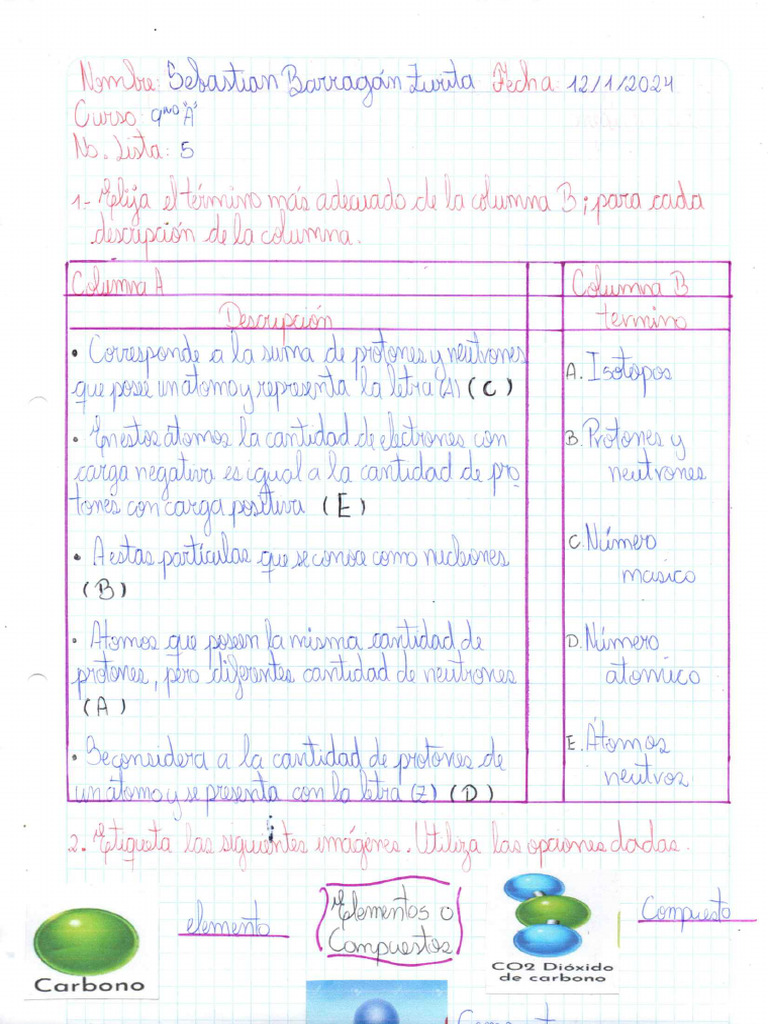 Nombre: Sebastian Barragán Zurita Fecha: 12/1/2024
Curso: 9no "A"
No. Lista: 5
1.- Elija el término más adecuado de la columna B; para cada
descripción de la columna.
Columna A
Descripción
• Corresponde a la suma de protones y neutrones
que posee un átomo y representa la letra (A) (C)
• En estos átomos la cantidad de electrones con
carga negativa es igual a la cantidad de pro
tones con carga positiva (E)
• A estas partículas que se conoce como nucleones
(B)
• Atomos que poseen la misma cantidad de
protones, pero diferentes cantidad de neutrones
(A)
• Se considera a la cantidad de protones de
un átomo y se presenta con la letra (Z) (D)
Columna B
termino
A. Isotopos
B. Protones y
neutrones
C. Número
masico
D. Número
atomico
E. Átomos
neutros
2. Etiqueta las siguientes imágenes. Utiliza las opciones dadas.
Carbono
elemento
Elementos o
Compuestos
CO2 Dióxido
de carbono
Compuesto